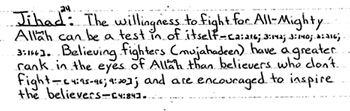 24
Jihad: The willingness to fight for All-Mighty
Allah can be a test in of itself-[2:216; 3:142; 3:140; 2:216;
3:186]. Believing fighters (mujahadeen) have a greater
rank in the eyes of Allah than believers who don't
fight-[4:95-96; 9:20]; and are encouraged to inspire
the believers-[4:84].